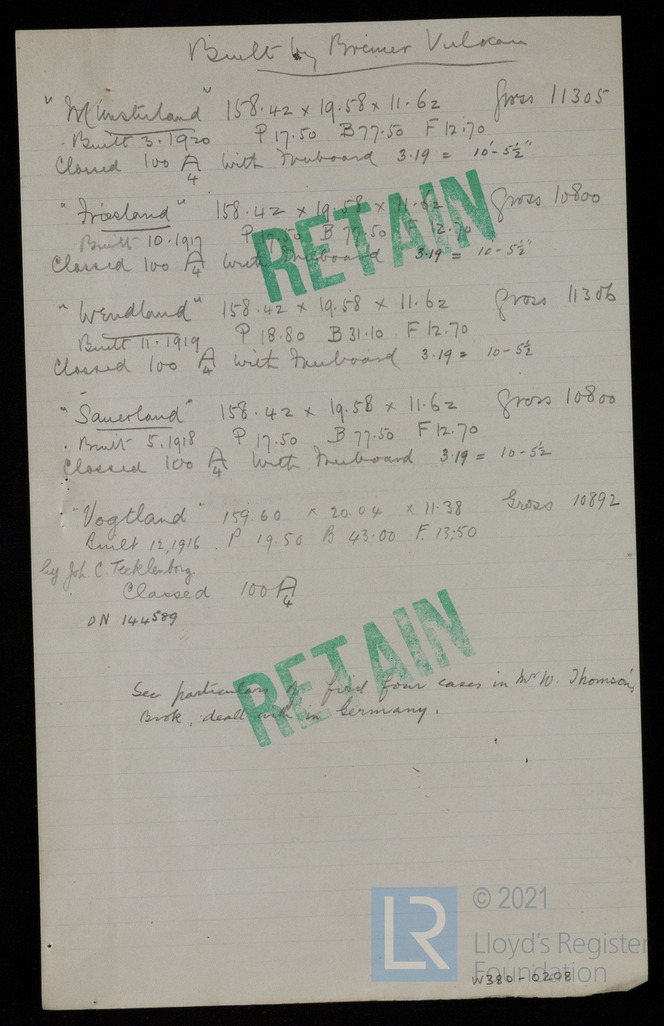 Built by Bremer Vulkan
"Münsterland" 158.42 x 19.58 x 11.62 Gross 11305
Built 3.1920 P 17.50 B 77.50 F 12.70
Classed 100 A/4 with Freeboard 3.19 = 10'-5½"
"Friesland" 158.42 x 19.58 x 11.62 gross 10800
Built 10.1917 P 17.50 B 77.50 F 12.70
Classed 100 A/4 with Freeboard 3.19 = 10-5½"
RETAIN
"Wendland" 158.42 x 19.58 x 11.62 gross 11306
Built 11.1919 P 18.80 B 31.10 F 12.70
Classed 100 A/4 with Freeboard 3.19 = 10-5½
"Sauerland" 158.42 x 19.58 x 11.62 gross 10800
Built 5.1918 P 17.50 B 77.50 F 12.70
Classed 100 A/4 with Freeboard 3.19 = 10-5½
"Vogtland" 159.60 x 20.04 x 11.38 Gross 10892
Built 12,1916. P 19.50 B 43.00 F. 13.50
by Joh. C. Tecklenborg.
Classed 100 A/4
ON 144589
RETAIN
See particulars of first four cases in Mr W. Thomson's
Book, dealt with in Germany.
LR
© 2021
Lloyd's Register
Foundation
W380-0298